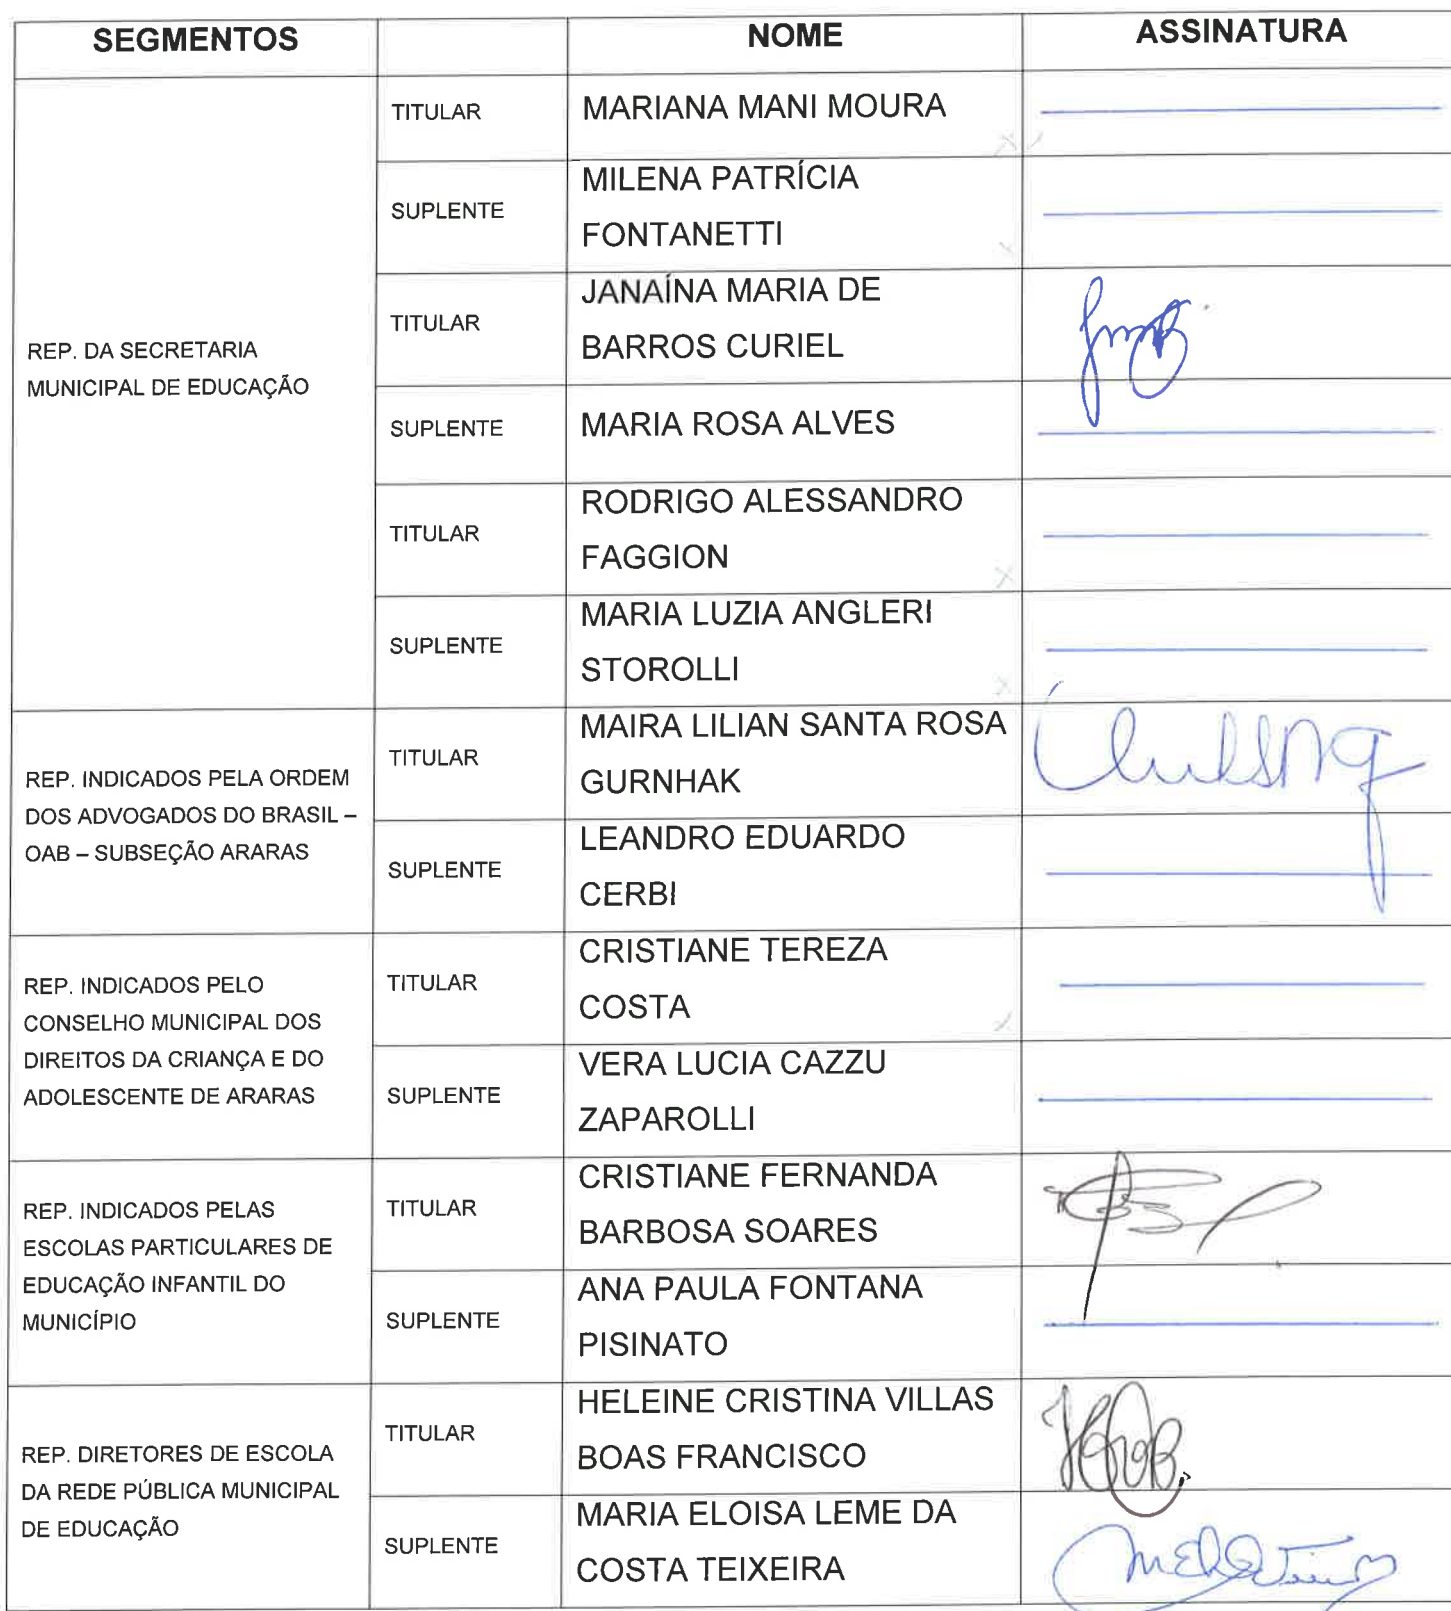 SEGMENTOS NOME ASSINATURA
REP. DA SECRETARIA
MUNICIPAL DE EDUCAÇÃO
TITULAR
MARIANA MANI MOURA
SUPLENTE
MILENA PATRÍCIA
FONTANETTI
TITULAR
JANAÍNA MARIA DE
BARROS CURIEL
SUPLENTE
MARIA ROSA ALVES
TITULAR
RODRIGO ALESSANDRO
FAGGION
SUPLENTE
MARIA LUZIA ANGLERI
STOROLLI
REP. INDICADOS PELA ORDEM
DOS ADVOGADOS DO BRASIL –
OAB – SUBSEÇÃO ARARAS
TITULAR
MAIRA LILIAN SANTA ROSA
GURNHAK
SUPLENTE
LEANDRO EDUARDO
CERBI
REP. INDICADOS PELO
CONSELHO MUNICIPAL DOS
DIREITOS DA CRIANÇA E DO
ADOLESCENTE DE ARARAS
TITULAR
CRISTIANE TEREZA
COSTA
SUPLENTE
VERA LUCIA CAZZU
ZAPAROLLI
REP. INDICADOS PELAS
ESCOLAS PARTICULARES DE
EDUCAÇÃO INFANTIL DO
MUNICÍPIO
TITULAR
CRISTIANE FERNANDA
BARBOSA SOARES
SUPLENTE
ANA PAULA FONTANA
PISINATO
REP. DIRETORES DE ESCOLA
DA REDE PÚBLICA MUNICIPAL
DE EDUCAÇÃO
TITULAR
HELEINE CRISTINA VILLAS
BOAS FRANCISCO
SUPLENTE
MARIA ELOISA LEME DA
COSTA TEIXEIRA